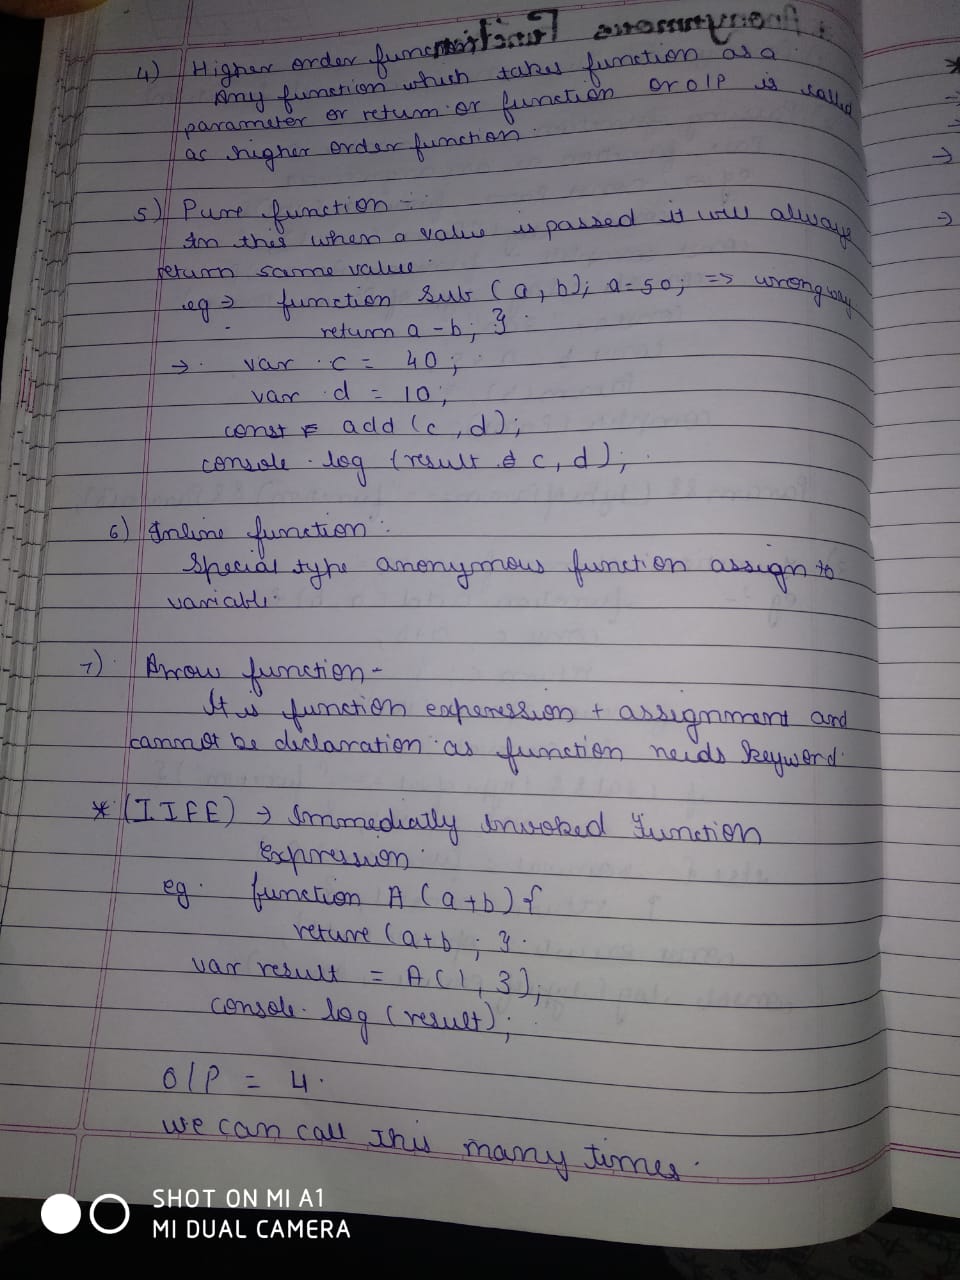 4) Higher order function
Any function which takes function as a
parameter or return or function or o/p is called
as higher order function.
5) Pure function -
In this when a value is passed it will always
return same value.
eg → function sub (a, b); a=50; => wrong way
return a-b; }
→ var c = 40;
var d = 10;
const add (c, d);
console.log (result c, d);
6) Inline function:
Special type anonymous function assign to
variable.
7) Arrow function -
It is function experession + assignment and
cannot be declaration as function needs keyword.
* (IIFE) → Immediatly Invoked Function
Expression.
eg. function A (a+b) {
reture (a+b ; }.
var result = A(1, 3);
console.log (result);
O/P = 4.
we can call this many times.
SHOT ON MI A1
MI DUAL CAMERA